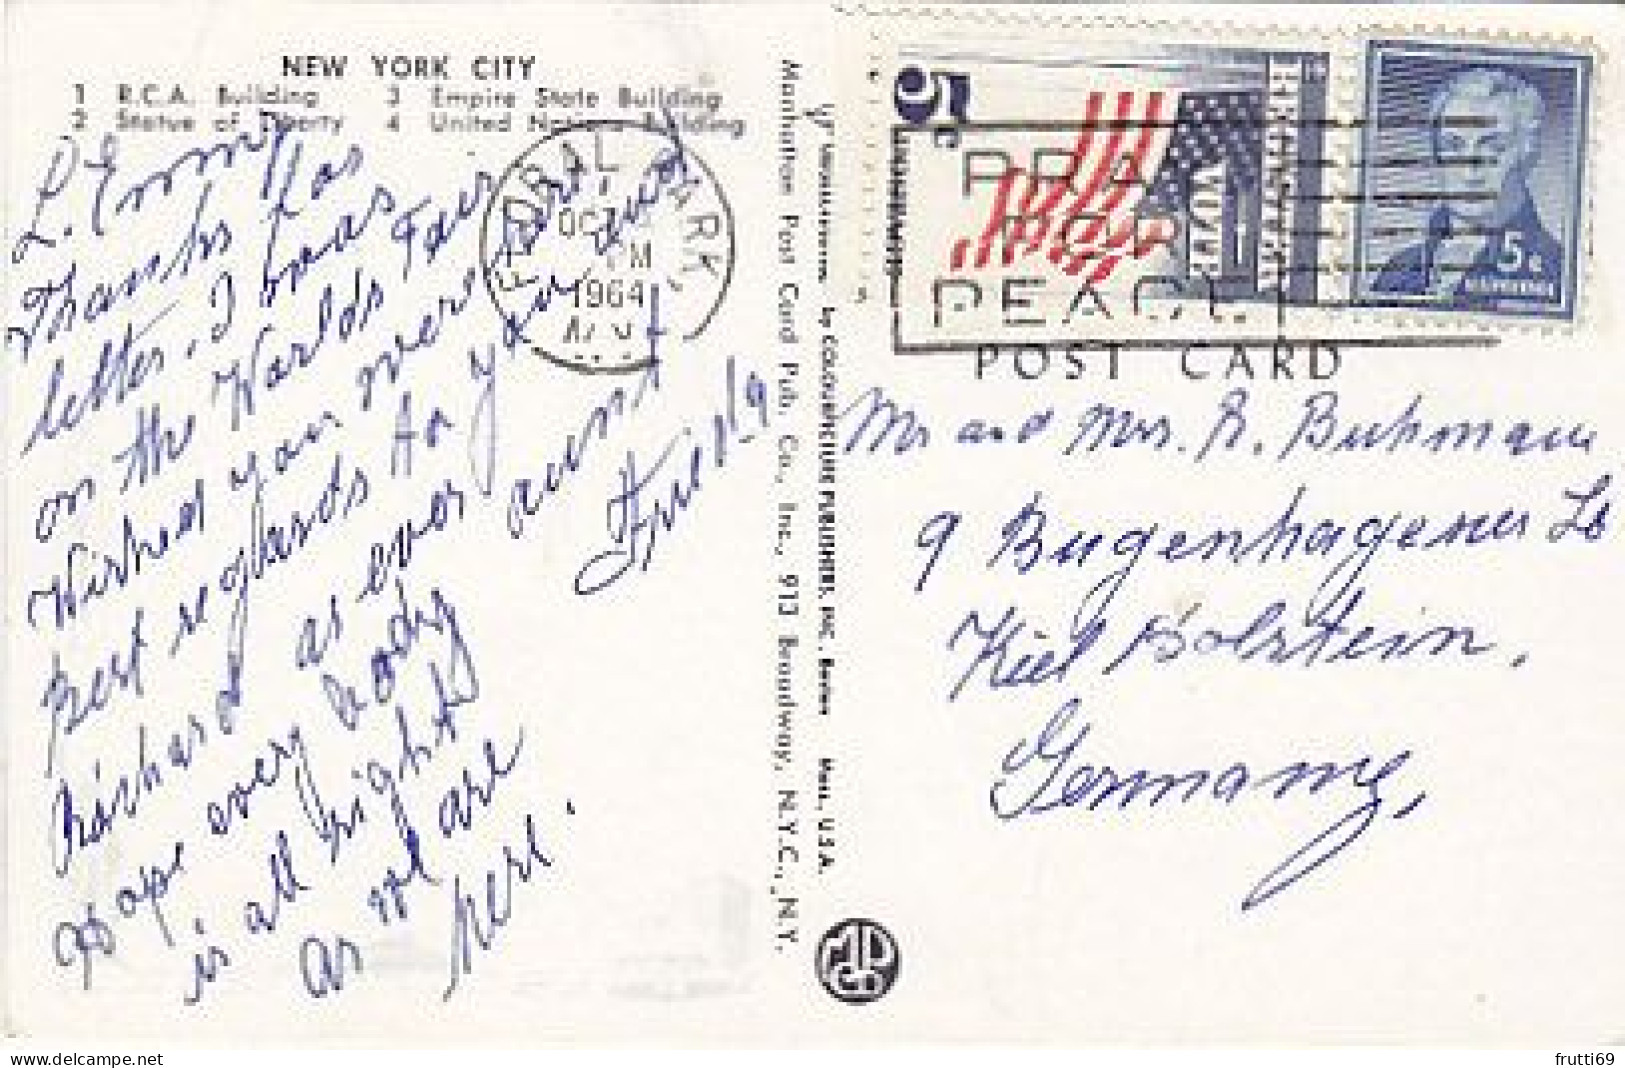 NEW YORK CITY
1 R.C.A. Building 3 Empire State Building
2 Statue of Liberty 4 United Nations Building
L. Emmy
Thanks for
letter. I was
on the World's Fair
Wishes you
Best regards to you and
Richard as ever aunt
Hope every body Frieda
is all right
as we are
here.
FLORAL PARK,
OCT
PM
1964
N.Y.
Manhattan Post Card Pub. Co., Inc., 913 Broadway, N.Y.C., N.Y.
by COLOURPICTURE PUBLISHERS, INC., Boston Mass., U.S.A.
5c
PRAY
FOR
PEACE
5c
POST CARD
Mr and Mrs. R. Buhmann
9 Bugenhagener
Kiel Holstein.
Germany,
frutti69
www.delcampe.net